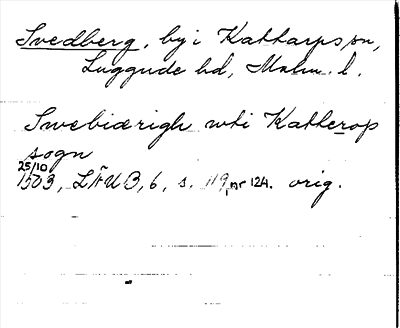 Svedberg, by i Kattarps sn,
Luggude hd, Malm. l.
Swebiærigh wti Katherop
sogn
25/10
1503, LÄUB, 6, s. 119, nr 124. orig.